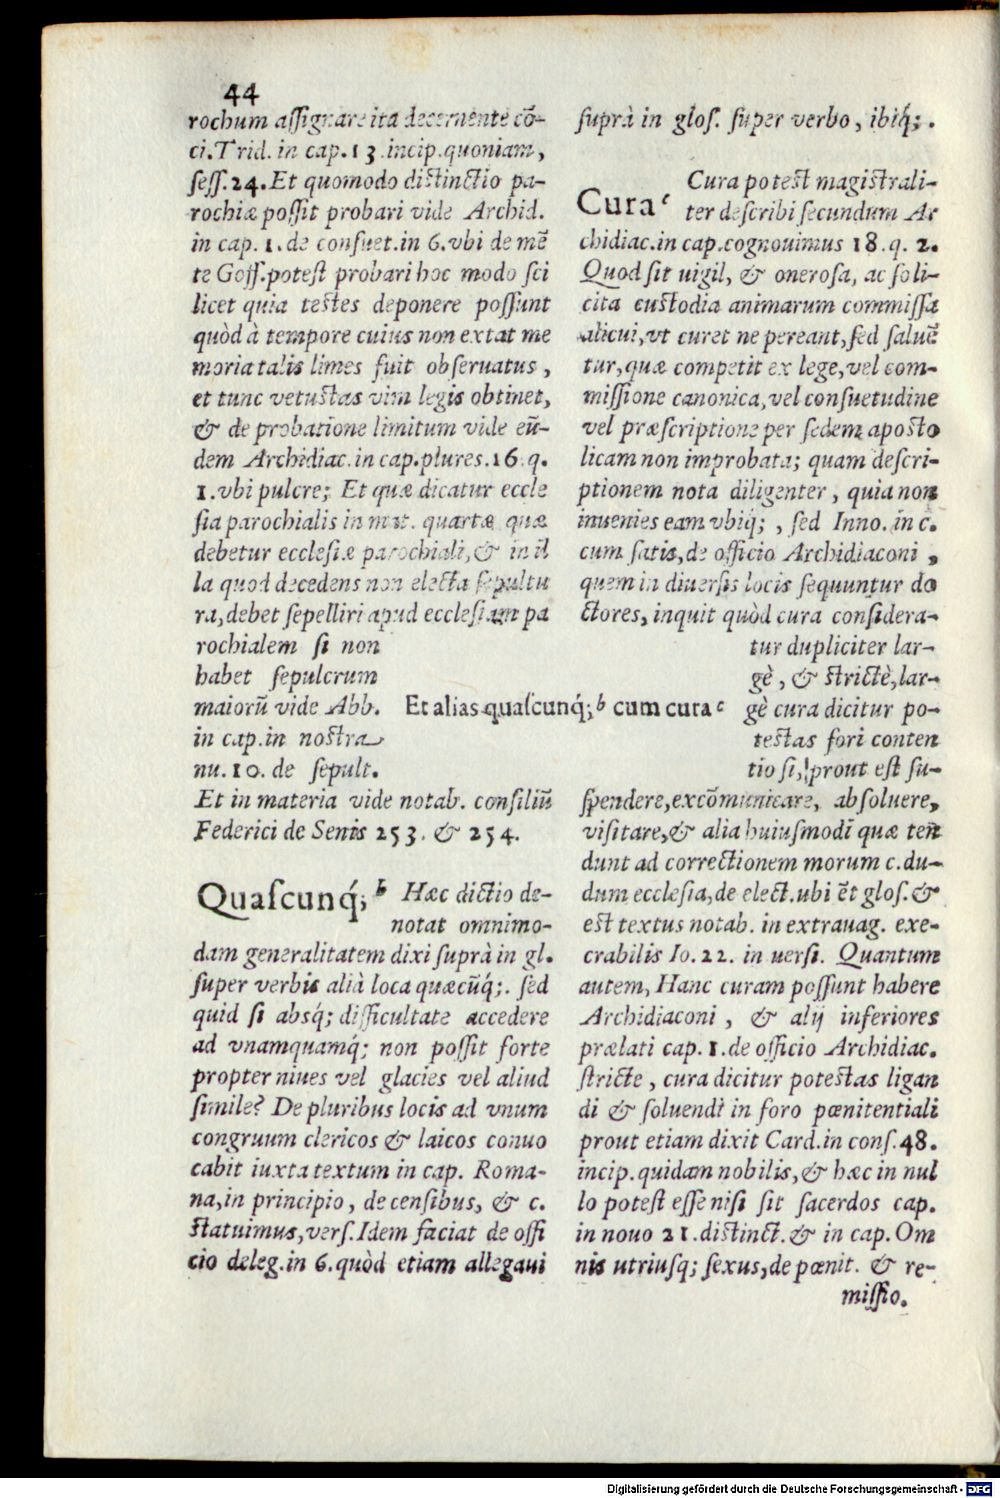 44
rochum assignare ita decernente cõ-
ci. Trid. in cap. 13. incip. quoniam,
sess. 24. Et quomodo distinctio pa-
rochiæ possit probari vide Archid.
in cap. 1. de consuet. in 6. vbi de mẽ
te Goff. potest probari hoc modo sci
licet quia testes deponere possunt
quòd à tempore cuius non extat me
moria talis limes fuit obseruatus,
et tunc vetustas vim legis obtinet,
& de probatione limitum vide eũ-
dem Archidiac. in cap. plures. 16. q.
1. vbi pulcre; Et quæ dicatur eccle
sia parochialis in mat. quartæ quæ
debetur ecclesiæ parochiali, & in il
la quod decedens non electa sepultu
ra, debet sepelliri apud ecclesiam pa
rochialem si non
habet sepulcrum
maiorũ vide Abb.
in cap. in nostra
nu. 10. de sepult.
Et in materia vide notab. consiliũ
Federici de Senis 253. & 254.
Quascunq́; b Hæc dictio de-
notat omnimo-
dam generalitatem dixi suprà in gl.
super verbis alià loca quæcũq́;. sed
quid si absq́; difficultate accedere
ad vnamquamq́; non possit forte
propter niues vel glacies vel aliud
simile? De pluribus locis ad vnum
congruum clericos & laicos conuo
cabit iuxta textum in cap. Roma-
na, in principio, de censibus, & c.
statuimus, vers. Idem faciat de offi
cio deleg. in 6. quòd etiam allegaui
Et alias quascunq́; b cum cura c
suprà in glos. super verbo, ibiq́;.
Cura c Cura potest magistrali-
ter describi secundum Ar
chidiac. in cap. cognouimus 18. q. 2.
Quod sit uigil, & onerosa, ac soli-
cita custodia animarum commissa
alicui, vt curet ne pereant, sed saluẽ
tur, quæ competit ex lege, vel com-
missione canonica, vel consuetudine
vel præscriptione per sedem aposto
licam non improbata; quam descri-
ptionem nota diligenter, quia non
inuenies eam vbiq́;, sed Inno. in c.
cum satis, de officio Archidiaconi,
quem in diuersis locis sequuntur do
ctores, inquit quòd cura considera-
tur dupliciter lar-
gè, & strictè, lar-
gè cura dicitur po-
testas fori conten
tiosi, prout est su-
spendere, excõmunicare, absoluere,
visitare, & alia huiusmodi quæ ten
dunt ad correctionem morum c. du-
dum ecclesia, de elect. ubi ẽt glos. &
est textus notab. in extrauag. exe-
crabilis Io. 22. in uersi. Quantum
autem, Hanc curam possunt habere
Archidiaconi, & alij inferiores
prælati cap. 1. de officio Archidiac.
stricte, cura dicitur potestas ligan
di & soluendi in foro pœnitentiali
prout etiam dixit Card. in cons. 48.
incip. quidam nobilis, & hæc in nul
lo potest esse nisi sit sacerdos cap.
in nouo 21. distinct. & in cap. Om
nis utriusq; sexus, de pœnit. & re-
missio.
Digitalisierung gefördert durch die Deutsche Forschungsgemeinschaft - DFG